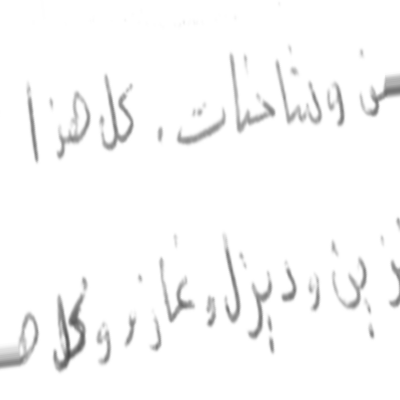 وشاحنات. كل هذا
وديزل وغاز وكل